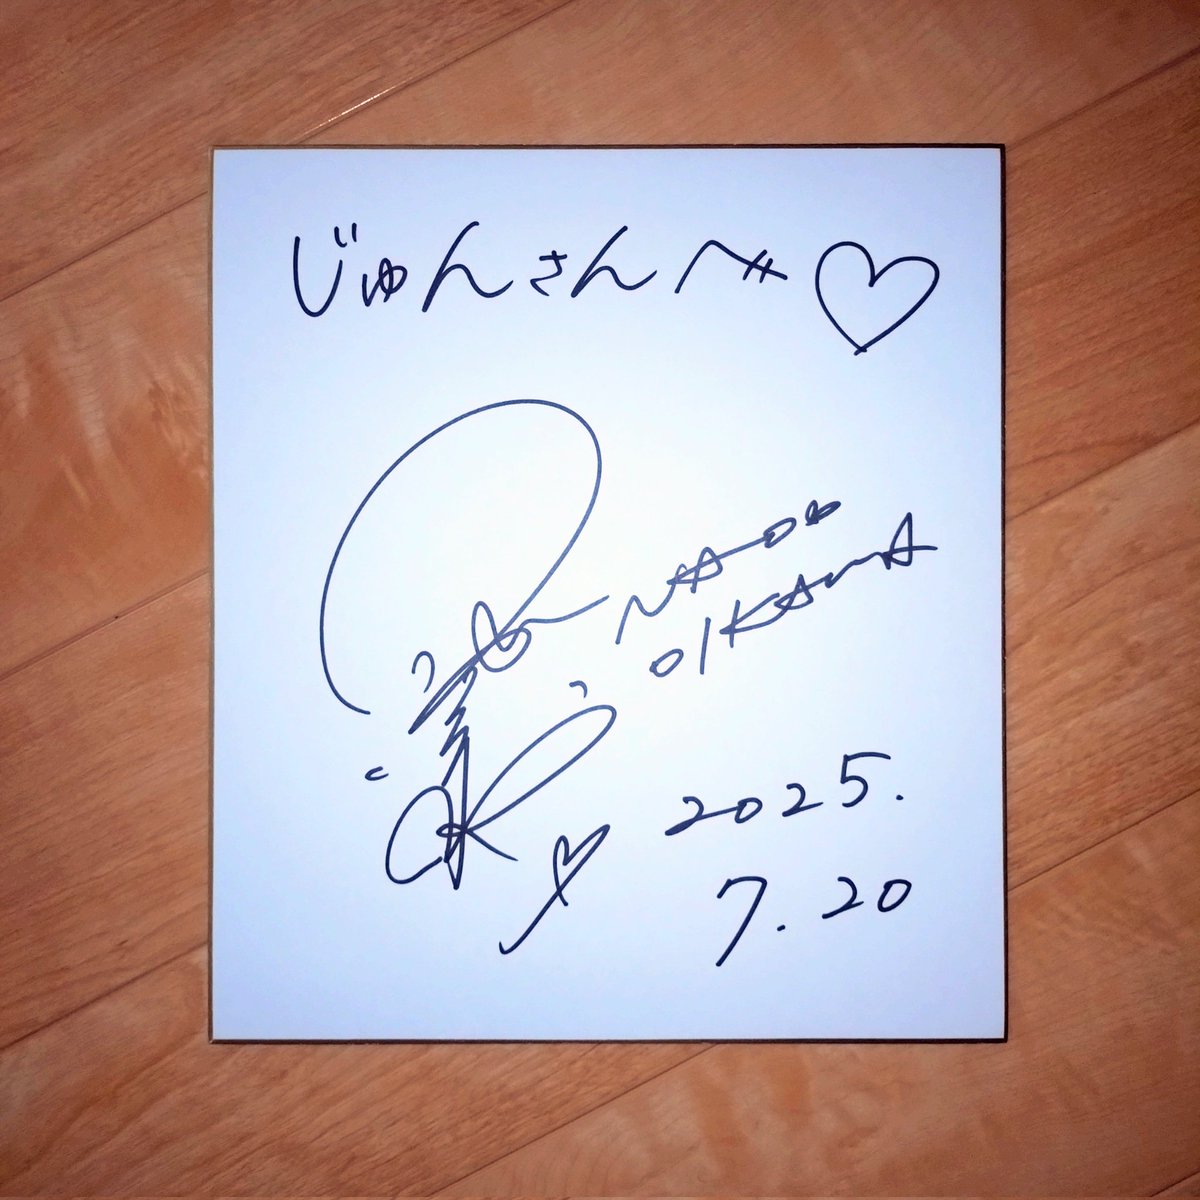 じゅんさんへ
NAO
OIKAWA
2025.
7.20